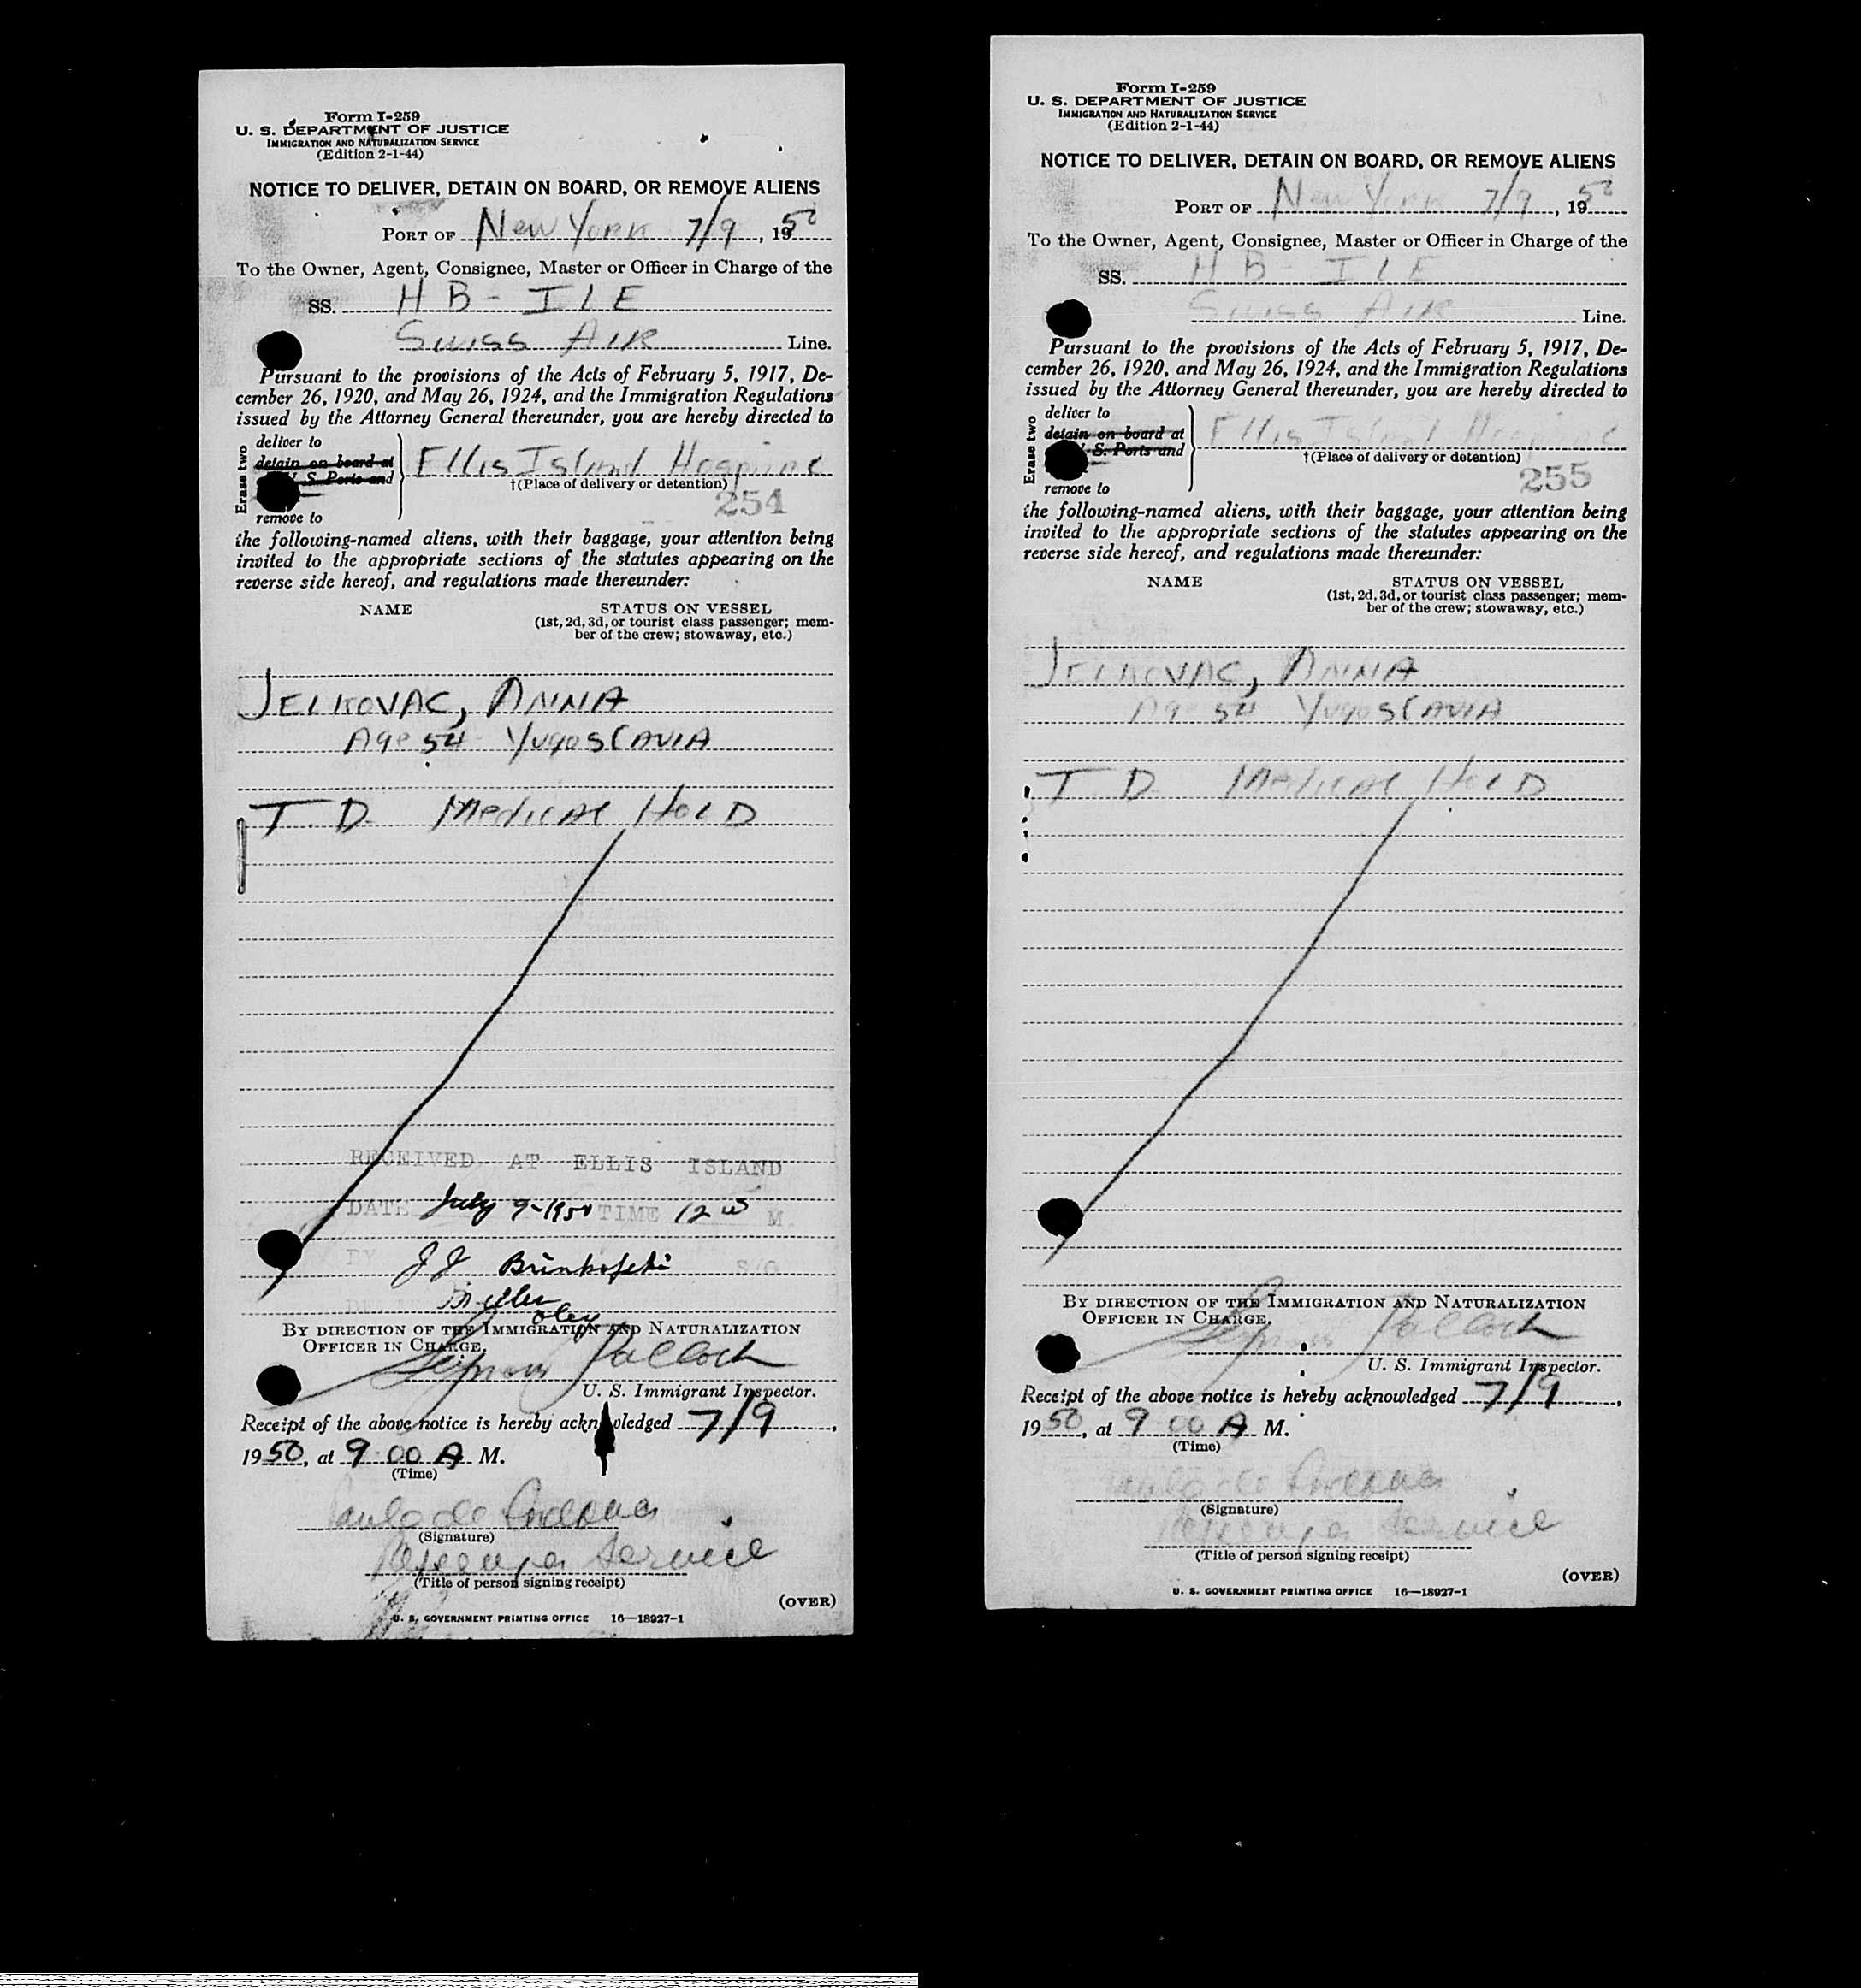 Form I-259
U. S. DEPARTMENT OF JUSTICE
IMMIGRATION AND NATURALIZATION SERVICE
(Edition 2-1-44)
NOTICE TO DELIVER, DETAIN ON BOARD, OR REMOVE ALIENS
PORT OF New York 7/9, 1950
To the Owner, Agent, Consignee, Master or Officer in Charge of the
SS. HB-ILE
Swiss Air Line.
Pursuant to the provisions of the Acts of February 5, 1917, De-
cember 26, 1920, and May 26, 1924, and the Immigration Regulations
issued by the Attorney General thereunder, you are hereby directed to
Erase two
deliver to
detain on board at
S. Ports and
remove to
Ellis Island Hospital
†(Place of delivery or detention)
254
the following-named aliens, with their baggage, your attention being
invited to the appropriate sections of the statutes appearing on the
reverse side hereof, and regulations made thereunder:
NAME STATUS ON VESSEL
(1st, 2d, 3d, or tourist class passenger; mem-
ber of the crew; stowaway, etc.)
JELKOVAC, ANNA
Age 54 YugoSlAVIA
T. D. Medical HolD
RECEIVED AT ELLIS ISLAND
DATE July 9-1950 TIME 12 00 M.
BY J J S/O
BY DIRECTION OF THE IMMIGRATION AND NATURALIZATION
OFFICER IN CHARGE.
Pollock
U. S. Immigrant Inspector.
Receipt of the above notice is hereby acknowledged 7/9,
1950, at 9 00 A M.
(Time)
(Signature)
Passenger Service
(Title of person signing receipt)
(OVER)
U. S. GOVERNMENT PRINTING OFFICE 16—18927-1
Form I-259
U. S. DEPARTMENT OF JUSTICE
IMMIGRATION AND NATURALIZATION SERVICE
(Edition 2-1-44)
NOTICE TO DELIVER, DETAIN ON BOARD, OR REMOVE ALIENS
PORT OF New York 7/9, 1950
To the Owner, Agent, Consignee, Master or Officer in Charge of the
SS. HB-ILE
Swiss Air Line.
Pursuant to the provisions of the Acts of February 5, 1917, De-
cember 26, 1920, and May 26, 1924, and the Immigration Regulations
issued by the Attorney General thereunder, you are hereby directed to
Erase two
deliver to
detain on board at
S. Ports and
remove to
Ellis Island Hospital
†(Place of delivery or detention)
255
the following-named aliens, with their baggage, your attention being
invited to the appropriate sections of the statutes appearing on the
reverse side hereof, and regulations made thereunder:
NAME STATUS ON VESSEL
(1st, 2d, 3d, or tourist class passenger; mem-
ber of the crew; stowaway, etc.)
JELKOVAC, ANNA
Age 54 YugoSlAVIA
T. D. Medical HolD
BY DIRECTION OF THE IMMIGRATION AND NATURALIZATION
OFFICER IN CHARGE.
Pollock
U. S. Immigrant Inspector.
Receipt of the above notice is hereby acknowledged 7/9,
1950, at 9 00 A M.
(Time)
(Signature)
Passenger Service
(Title of person signing receipt)
(OVER)
U. S. GOVERNMENT PRINTING OFFICE 16—18927-1